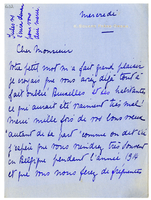 Mercredi
Cher Monsieur
Votre petit mot m'a fait grand plaisir
je voyais que vous aviez déjà tout à
fait oublié Bruxelles et ses habitants
ce qui aurait été vraiment très mal!
merci mille fois de vos bons vœux
autant de la part "comme on dit ici"
j'espère que vous viendrez très souvent
en Belgique pendant l'année 1914
et que vous nous ferez de fréquentes